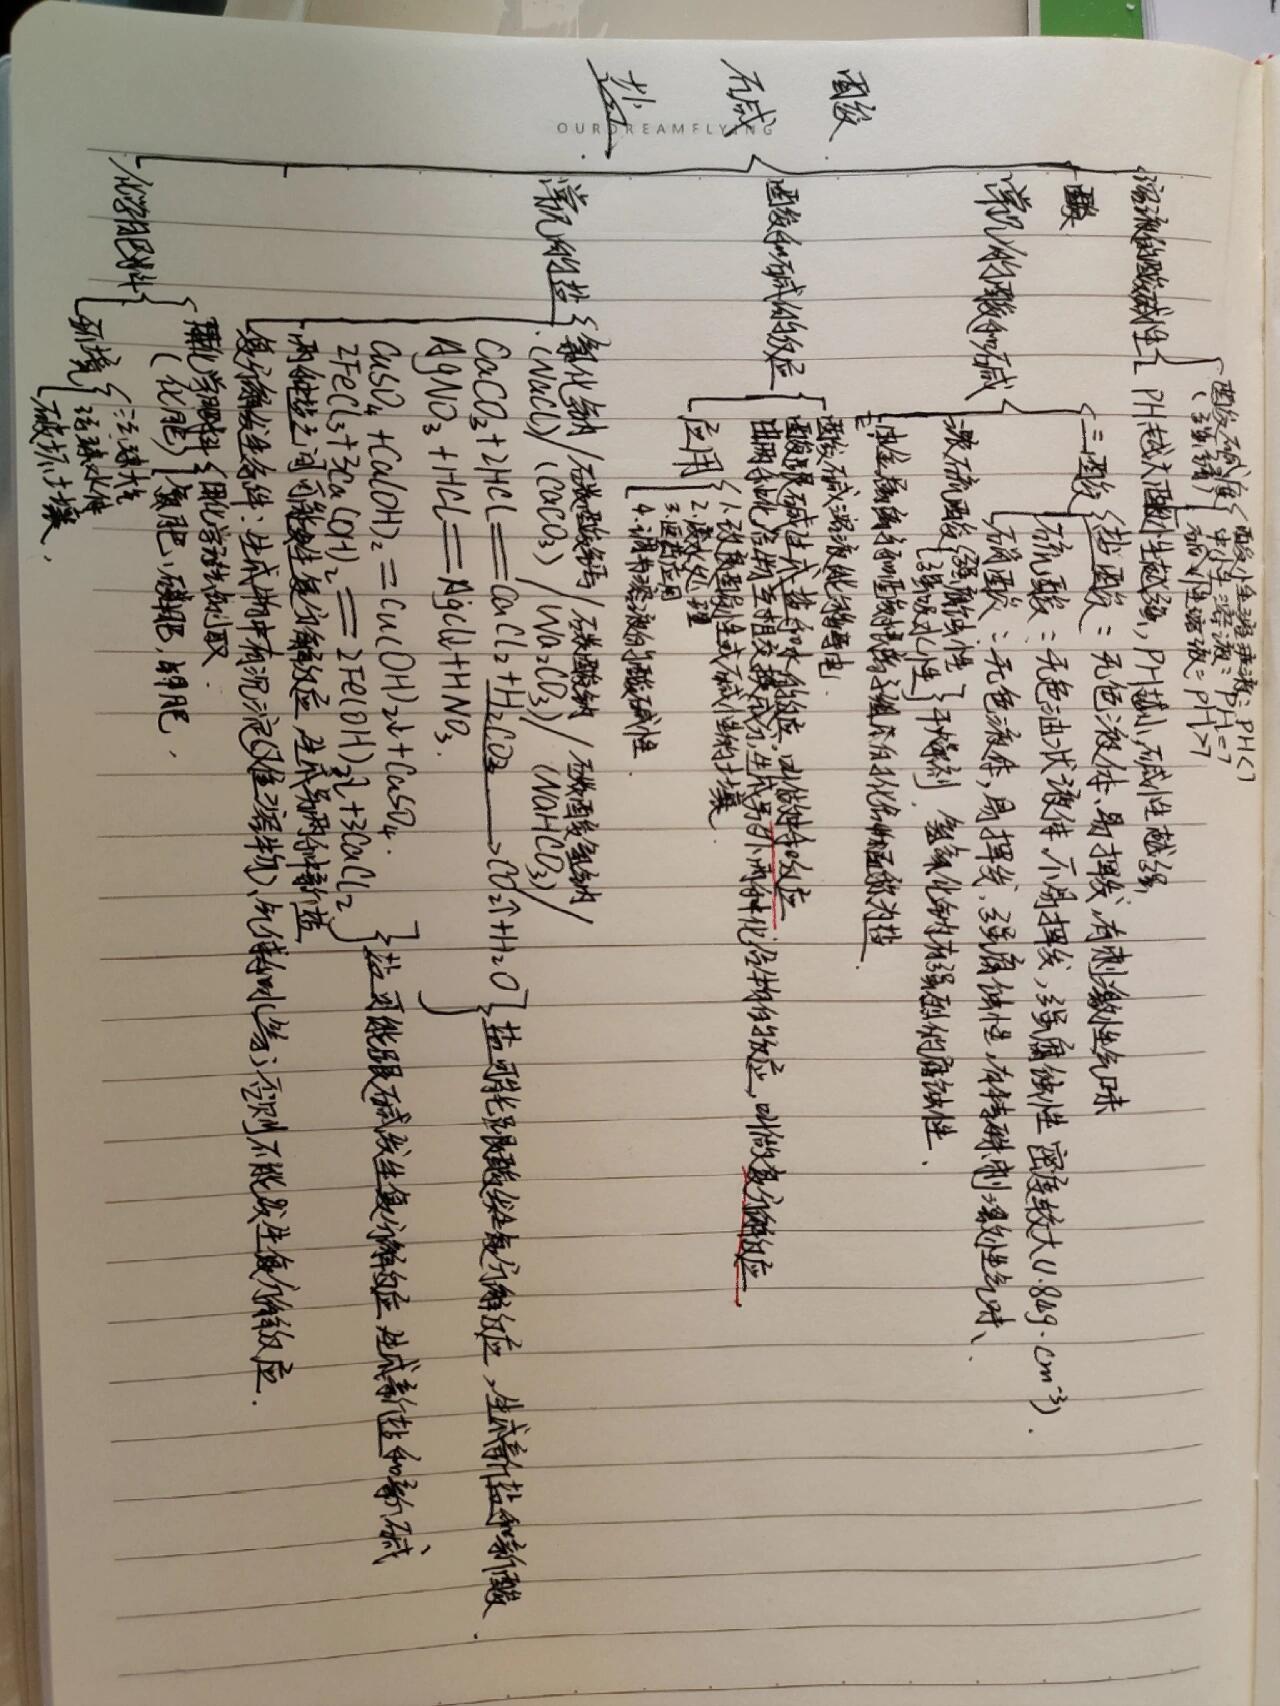 OURDREAMFLYING
酸
碱
盐
溶液的酸碱性
酸碱度
酸性溶液:PH<7
中性溶液:PH=7
碱性溶液=PH>7
PH越大酸性越强,PH越小碱性越强
常见的酸和碱
三酸
盐酸:无色液体、易挥发,有刺激性气味
硫酸:无色油状液体,不易挥发,强腐蚀性 密度较大(1.84g·cm⁻³).
硝酸:无色液体,易挥发,强腐蚀性,有特殊刺激性气味、
浓硫酸
强腐蚀性
强吸水性
干燥剂 氢氧化钠有强烈的腐蚀性.
由金属离子和酸根离子组成的化合物称为盐.
酸和碱的反应
酸碱溶液能够导电
酸跟碱生成盐和水的反应,叫做中和反应
由两种化合物互相交换成分,生成另外两种化合物的反应,叫做复分解反应
应用
1.改良酸性或碱性的土壤
2.废水处理
3.医药应用
4.调节溶液的酸碱性.
常见的盐
氯化钠/碳酸钙/碳酸钠/碳酸氢钠/
(NaCl)/(CaCO₃)/(Na₂CO₃)/(NaHCO₃)/
CaCO₃+2HCl=CaCl₂+H₂CO₃→CO₂↑+H₂O
AgNO₃+HCl=AgCl↓+HNO₃.
盐可能跟酸发生复分解反应,生成新盐和新酸.
CuSO₄+Ca(OH)₂=Cu(OH)₂↓+CaSO₄.
2FeCl₃+3Ca(OH)₂=2Fe(OH)₃↓+3CaCl₂
盐可能跟碱发生复分解反应 生成新盐和新碱
两种盐之间可能发生复分解反应 生成另两种新盐
复分解发生条件:生成物中有沉淀(难溶物)、气体和水(等),否则不能发生复分解反应.
化学肥料
化学肥料
(化肥)
用化学方法制取.
氮肥,磷肥,钾肥.
环境
污染水体
破坏土壤.